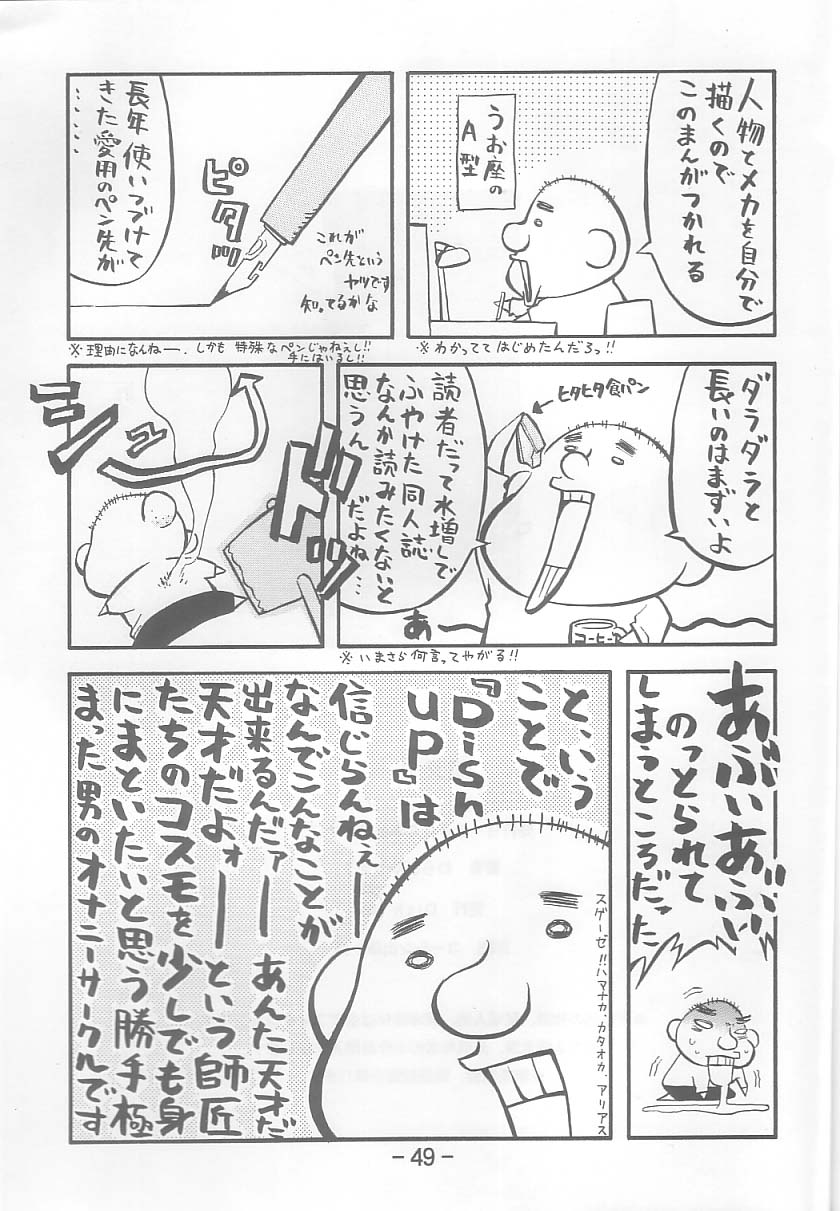 人物とメカを自分で
描くので
このまんがつかれる
うお座の
A型
※わかっててはじめたんだろっ!!
長年使いつづけて
きた愛用のペン先が
……
ピタッ
これが
ペン先という
ヤツです
知ってるかな
※理由になんねー.しかも特殊なペンじゃねえし!!
手にはいるし!!
ダラダラと
長いのはまずいよ
ヒタヒタ食パン
読者だって水増しで
ふやけた同人誌
なんか読みたくないと
思うん だよね…
あー
コーヒー
※いまさら何言ってやがる!!
ドドッ
あぶいあぶい
のっとられて
しまうところだった
と、いう
ことで
『Dish
up』は
信じらんねぇー
なんでこんなことが
出来るんだァーあんた天才だ
天才だよォーーという師匠
たちのコスモを少しでも身
にまといたいと思う勝手極
まった男のオナニーサークルです
スゲーゼ!!ハマナカ、カタオカ、アリアス
-49-